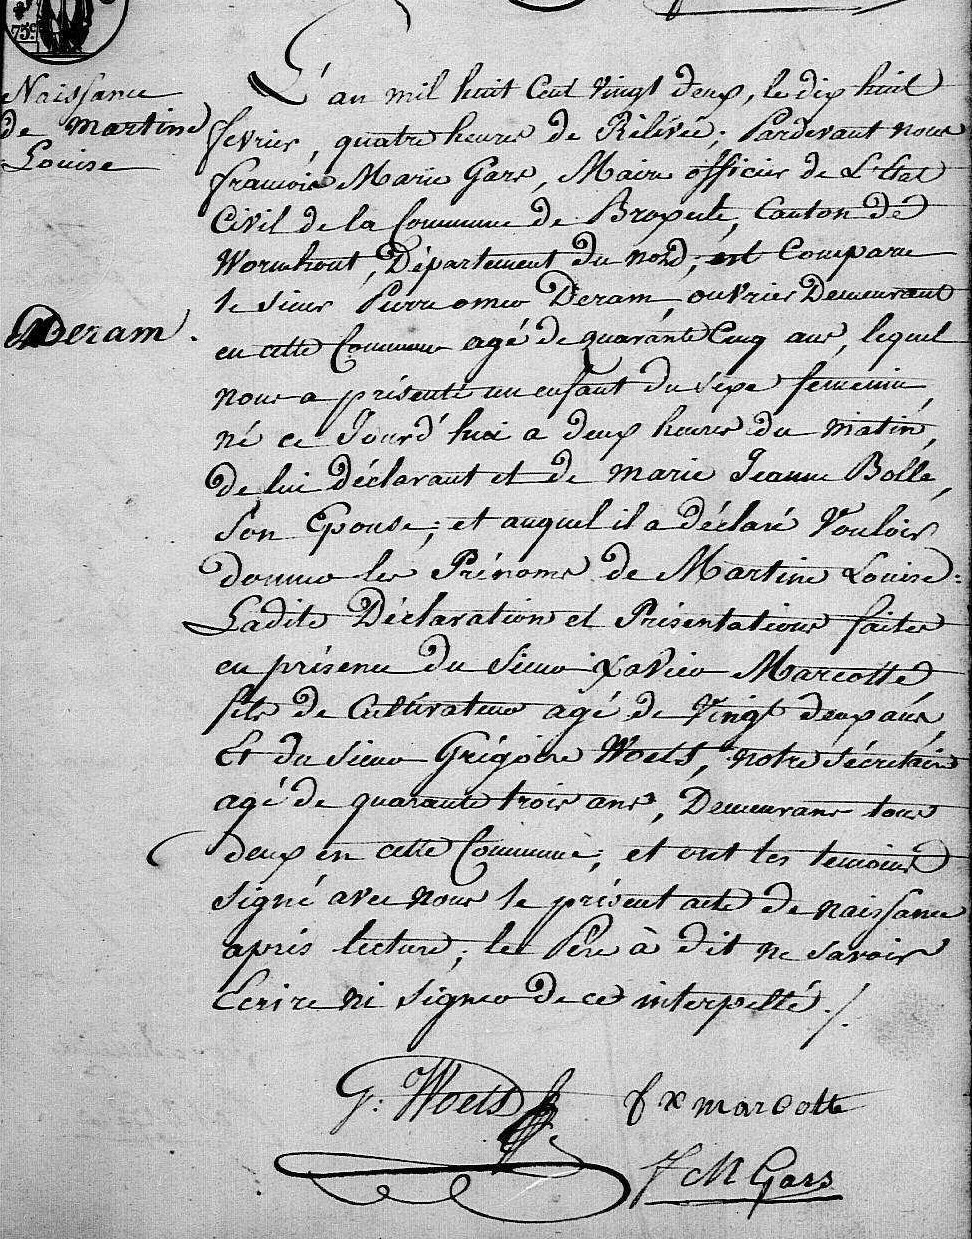 75c
Naissance
de Martine
Louise
Deram.
L'an mil huit Cent vingt deux, le dix huit
fevrier, quatre heures de Rélévée; Pardevant nous
francois Marie Gars, Maire officier de L'Etat
Civil de la Commune de Broxeele, Canton de
Wormhout, Département du nord, est Comparu
le sieur Pierre omer Deram, ouvrier Demeurant
en cette Commune agé de quarante Cinq ans, lequel
nous a présenté un enfant du sexe femenin,
né ce Jourd'hui a deux heures du matin,
de lui déclarant et de marie Jeanne Bolle,
Son Epouse, et auquel il a déclaré Vouloir
donner les Prénoms de Martine Louise:
Ladite Déclaration et Présentations faites
en présence du Sieur xavier Marcotte
fils de Cultivateur agé de Vingt deux ans,
Et du sieur Grégoire Woets, notre sécretaire
agé de quarante trois ans, Demeurans tous
deux en cette Commune; et ont les temoins
signé avec nous le présent acte de naissance
aprés lecture, le Pére à dit ne savoir
Ecrire ni signer de ce interpellé ./.
G: Woets
f x marcotte
f M Gars